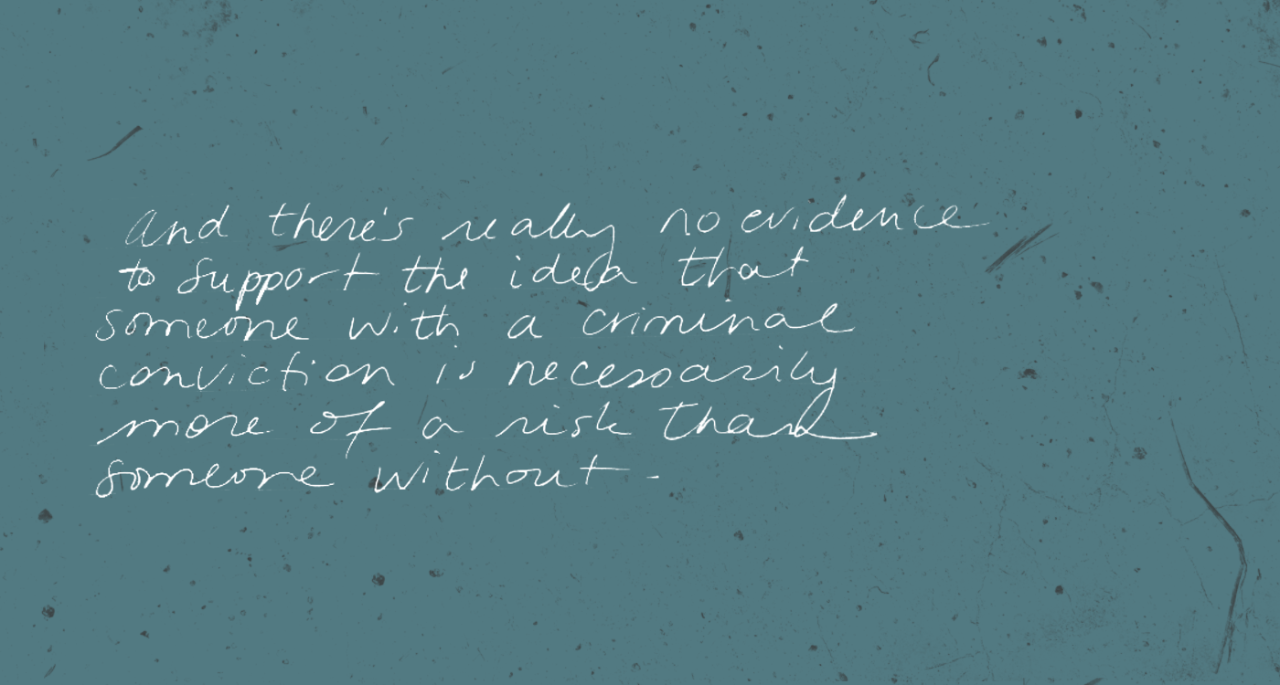 And there's really no evidence
to support the idea that
someone with a criminal
conviction is necessarily
more of a risk than
someone without.